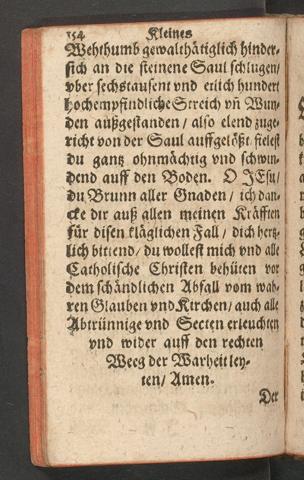 154 Kleines
Wehthumb gewalthätiglich hinder-
sich an die steinene Saul schlugen/
vber sechstausent vnd etlich hundert
hochempfindliche Streich vñ Wun-
den außgestanden / also elend zuge-
richt von der Saul auffgelößt fielest
du gantz ohnmächtig vnd schwin-
dend auff den Boden. O JEsu/
du Brunn aller Gnaden / ich dan-
cke dir auß allen meinen Kräfften
für disen kläglichen Fall / dich hertz-
lich bittend / du wollest mich vnd alle
Catholische Christen behüten vor
dem schändlichen Abfall vom wah-
ren Glauben vnd Kirchen / auch alle
Abtrünnige vnd Secten erleuchten
vnd wider auff den rechten
Weeg der Warheit ley-
ten / Amen.
Der